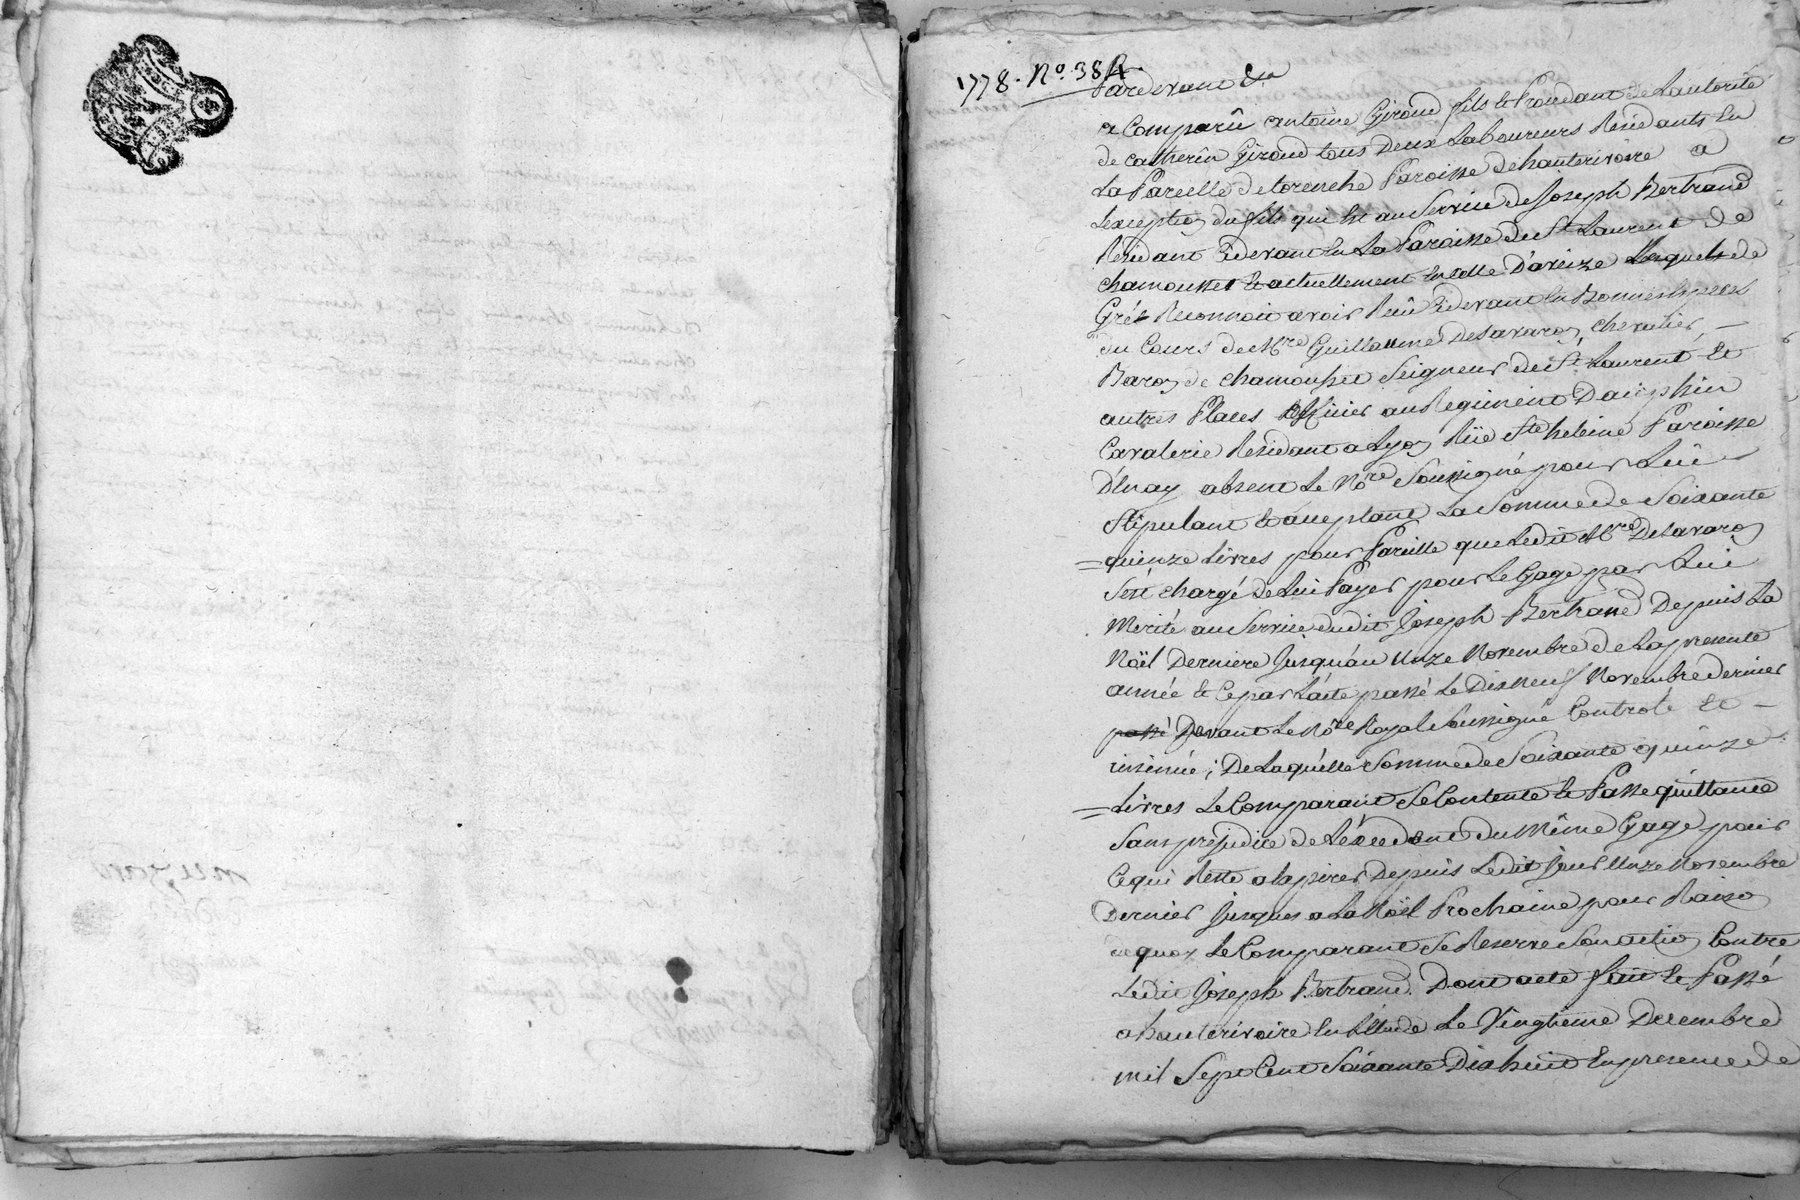 1778. No. 384.
Pardevant &a
a Comparû antoine Giroud fils et Proudant de Lautorité
de catherin Giroud tous deux Laboureurs Residants En
La Parcelle de torenche Paroisse dehauterivoire a
Lexception du fils qui Est au Service de Joseph Bertrand
Residant Cidevant En La Paroisse de St. Laurent de
chamousset et actuellement En celle D'aveize Lesquels de
Gré Reconnoit avoir Reçû Cidevant En Bonnes Especes
du Cours de Mre Guillaume Desavaron chevalier,
Baron de chamousset Seigneur de St. Laurent Et
autres Places officier au Regiment Dauphin
Cavalerie Residant a Lyon Rüe Ste heleine Paroisse
D'Enay absent Le Nore Soussigné pour Lui
Stipulant et acceptant La Somme de Soixante
quinze Livres pour Pareille que Ledit Mre Desavaron
S'est chargé de Lui Payer pour Le Gage par Lui
Merité au Service dudit Joseph Bertrand Depuis La
Noël Derniere Jusquau Unze Novembre de La presente
année et Ce par L'acte passé Le Dixneuf Novembre dernier
passé Devant Le Nore Royal Soussigné Controlé Et
insinué; De Laquelle Somme de Soixante quinze
Livres Le Comparant Se Contente et Passe quittance
Sans prejudice de L'excedent du Même Gage pour
Ce qui Reste a Expirer Depuis Ledit Jour Unze Novembre
Dernier Jusques a La Noël Prochaine pour Raison
dequoy Le Comparant Se Reserve Son action Contre
Ledit Joseph Bertrand. Dont acte fait et Passé
a hauterivoire En Etude Le Vingtieme Decembre
mil Sept Cent Soixante Dixhuit En presence de